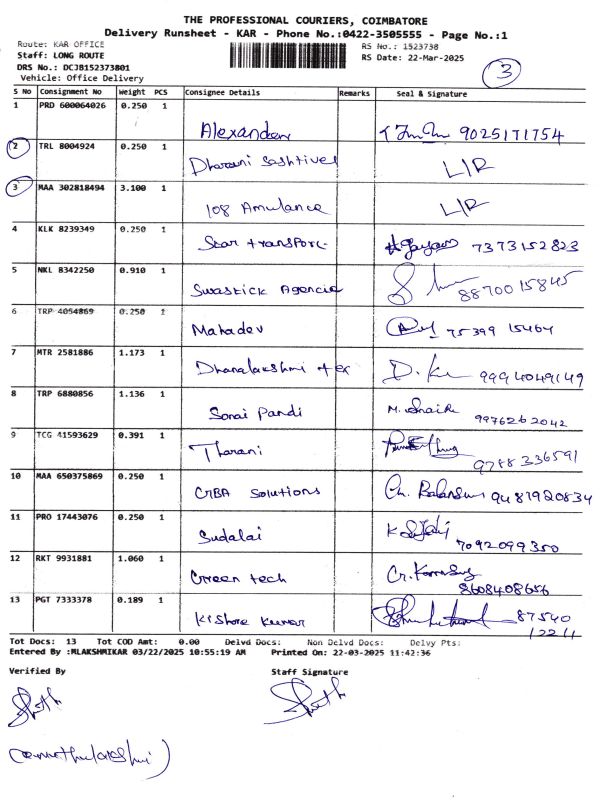 THE PROFESSIONAL COURIERS, COIMBATORE
Delivery Runsheet - KAR - Phone No.:0422-3505555 - Page No.:1
Route: KAR OFFICE
RS No.: 1523738
Staff: LONG ROUTE
RS Date: 22-Mar-2025
DRS No.: DCJ8152373801
Vehicle: Office Delivery
3
S No Consignment No Weight PCS Consignee Details Remarks Seal & Signature
1 PRD 600064026 0.250 1
Alexander 9025171754
2 TRL 8004924 0.250 1
Dharani L/R
3 MAA 302818494 3.100 1
108 Amulance L/R
4 KLK 8239349 0.250 1
Star transport 7373152823
5 NKL 8342250 0.910 1
Swastick Agencie 8870015845
6 TRP 4054869 0.250 1
Mahadev 75399 15464
7 MTR 2581886 1.173 1
Dhanalakshmi tex 9994049149
8 TRP 6880856 1.136 1
Sonai Pandi 9976262042
9 TCG 41593629 0.391 1
Tharani 9788336591
10 MAA 650375869 0.250 1
GBA Solutions 9487920834
11 PRO 17443076 0.250 1
Sudalai 7092099350
12 RKT 9931881 1.060 1
Green tech 8608408656
13 PGT 7333378 0.189 1
Kishore Kumar 87540
12211
Tot Docs: 13 Tot COD Amt: 0.00 Delvd Docs: Non Delvd Docs: Delvy Pts:
Entered By :MLAKSHMIKAR 03/22/2025 10:55:19 AM Printed On: 22-03-2025 11:42:36
Verified By Staff Signature